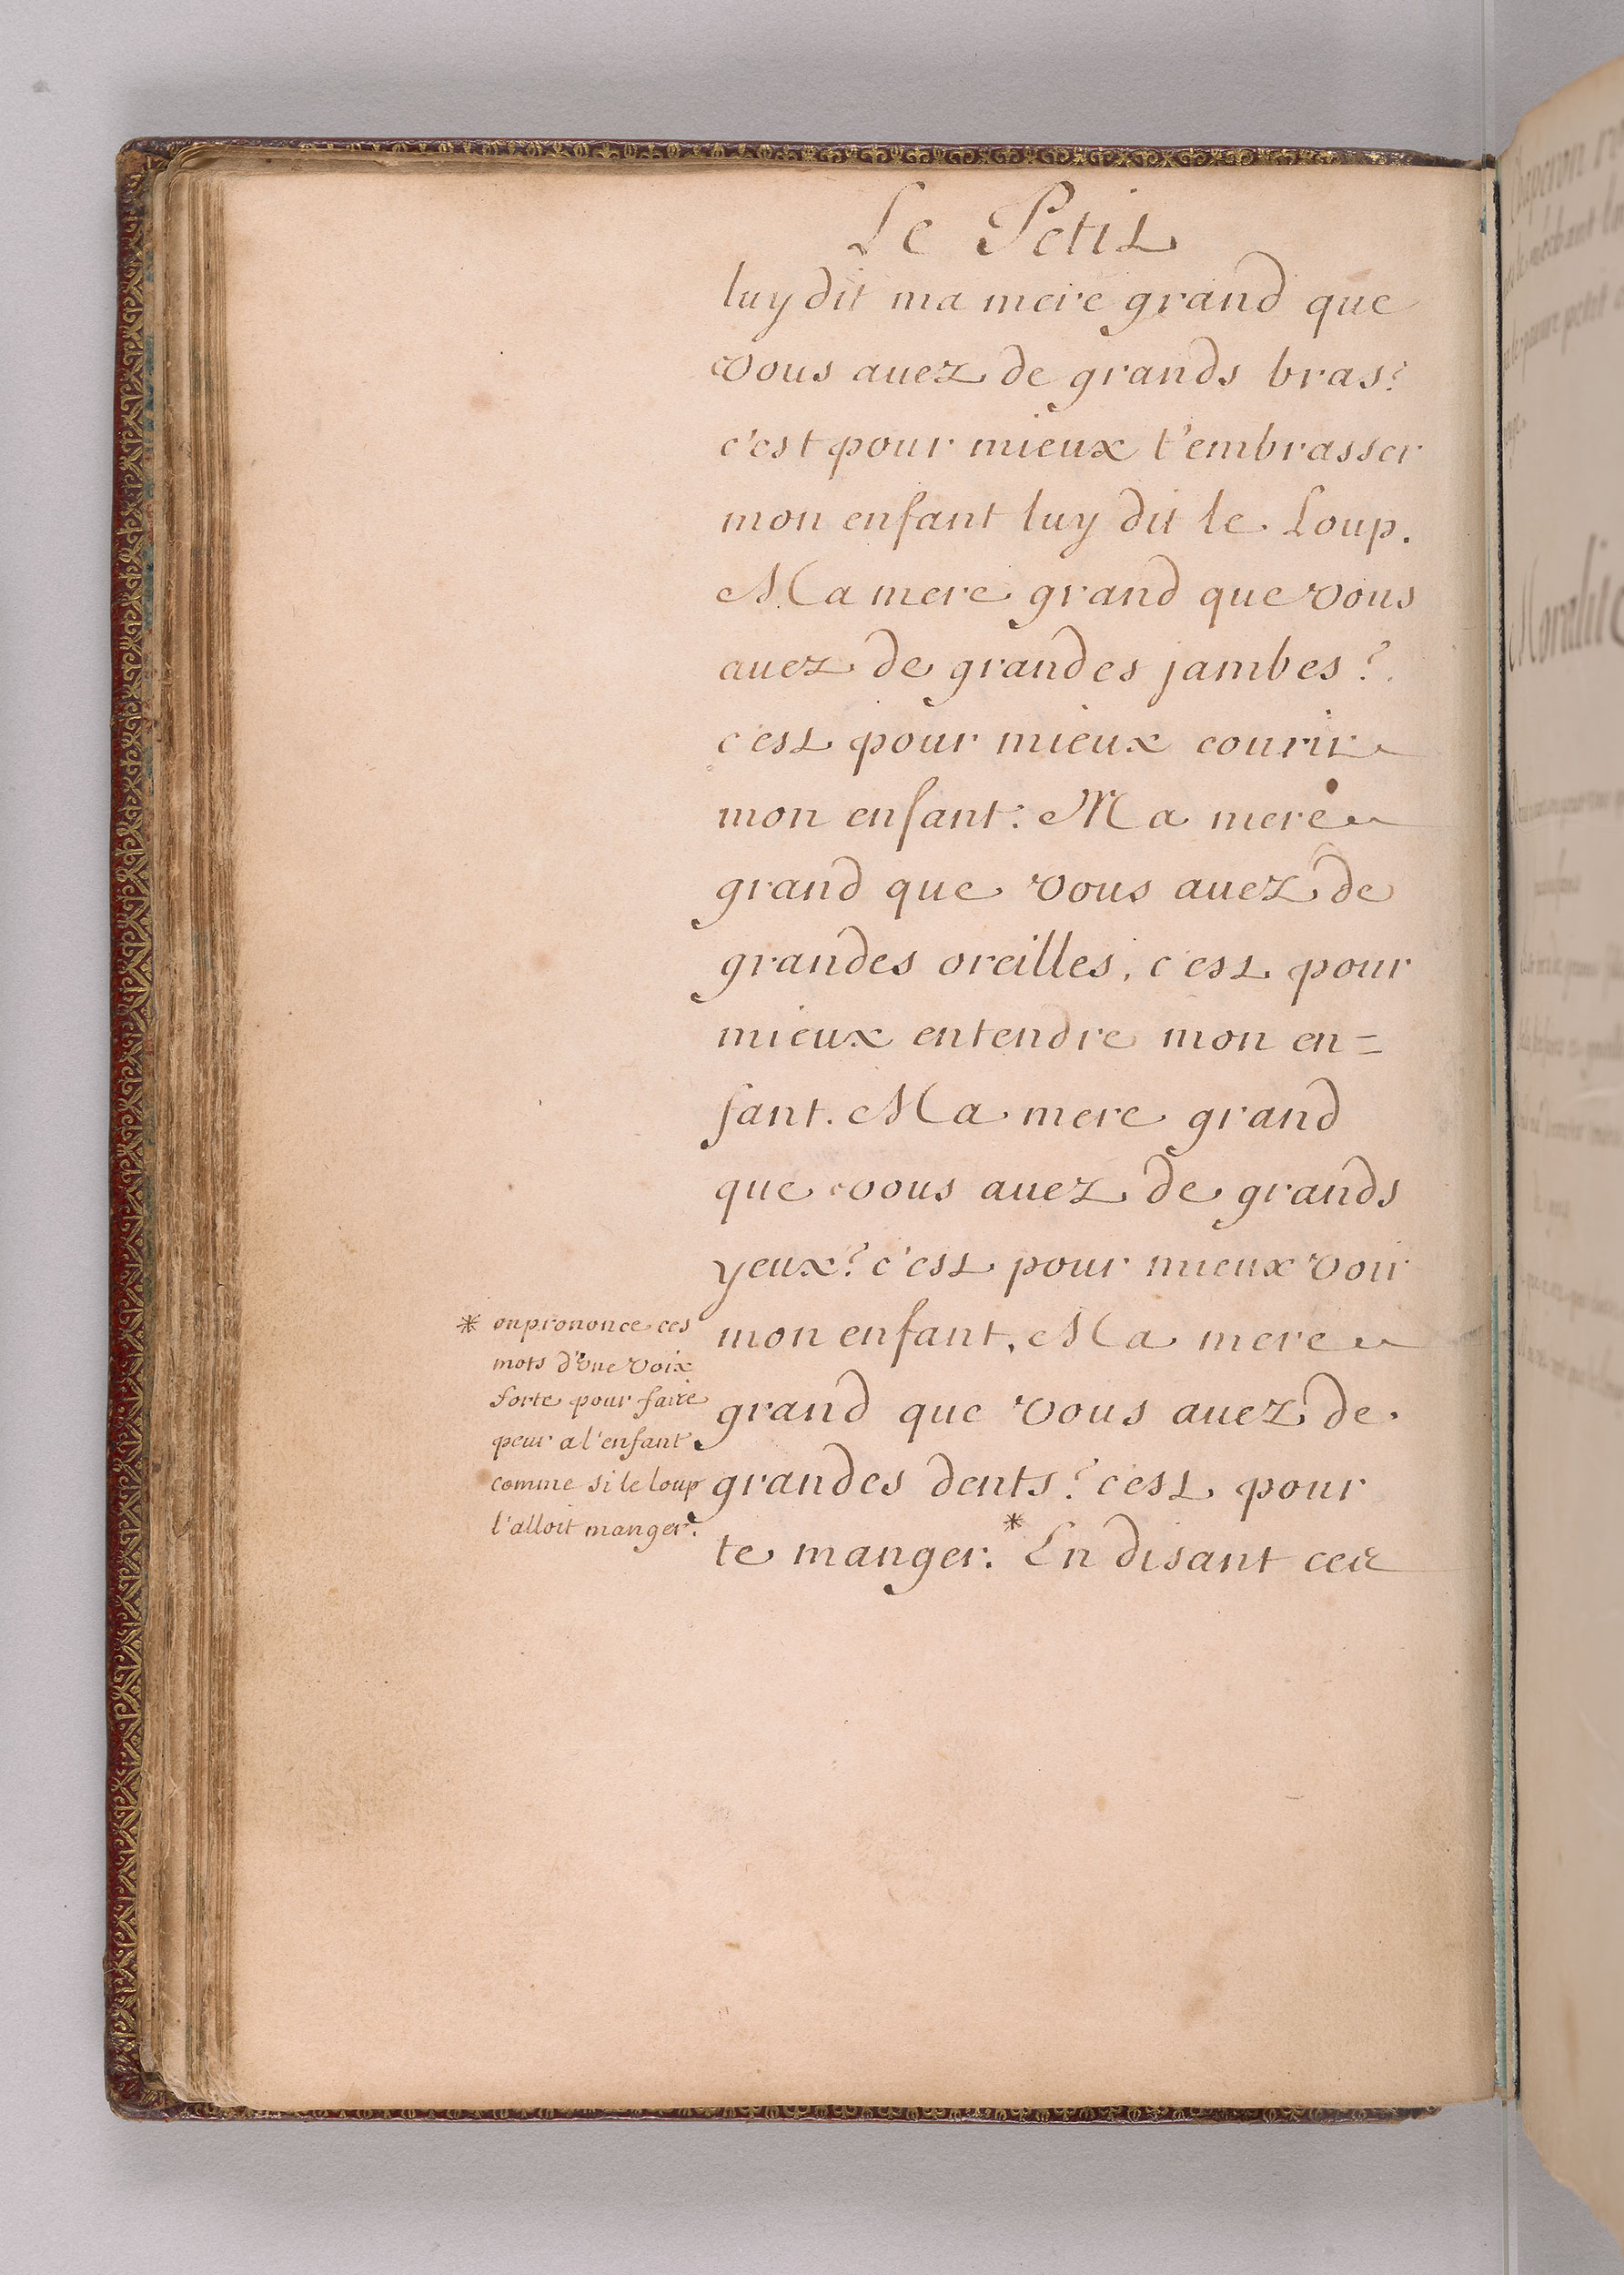 Le Petit
luy dit ma mere grand que
vous auez de grands bras?
c'est pour mieux t'embrasser
mon enfant luy dit le Loup.
Ma mere grand que vous
auez de grandes jambes?
c'est pour mieux courir
mon enfant: Ma mere
grand que vous auez de
grandes oreilles, c'est pour
mieux entendre mon en=
fant. Ma mere grand
que vous auez de grands
yeux? c'est pour mieux voir
mon enfant, Ma mere
grand que vous auez de
grandes dents? c'est pour
te manger.* En disant ces
* on prononce ces
mots d'vne voix
forte pour faire
peur a l'enfant
comme si le loup
l'alloit manger.
Moralité